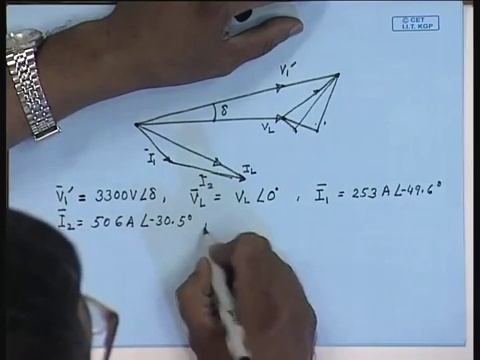 © CET
I.I.T. KGP
V₁′
δ
V_L
Ī₁
Ī₂
I_L
V̄₁′ = 3300V∠δ, V̄_L = V_L ∠0°, Ī₁ = 253 A∠-49.6°
Ī₂ = 506A ∠-30.5°,